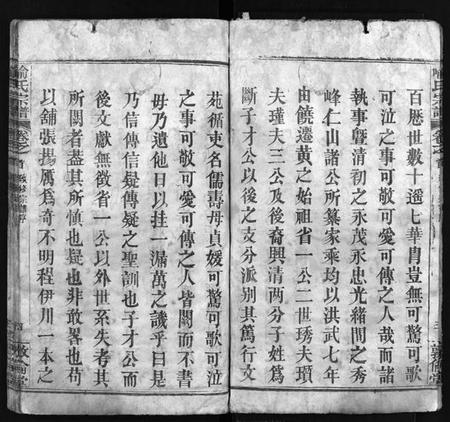 百歷世數十遙七華胄豈無可驚可歌
可泣之事可敬可愛可傳之人哉而諸
執事曁清初之永茂永忠光緒間之秀
峰仁山諸公所纂家乘均以洪武七年
由饒遷黃之始祖省一公二世琇夫瓊
夫瑾夫三公及後裔興清兩分子姓爲
斷子才公以後之支分派別其篤行文
苑循吏名儒壽母貞媛可驚可歌可泣
之事可敬可愛可傳之人皆闕而不書
毋乃遺他日以挂一漏萬之譏乎曰是
乃信傳信疑傳疑之聖訓也子才公而
後文獻無徵省一公以外世系失考其
所闕者蓋其所愼也疑也非敢畧也苟
以舖張揚厲爲奇不明程伊川一本之
喻氏宗譜
卷之首
敦倫堂